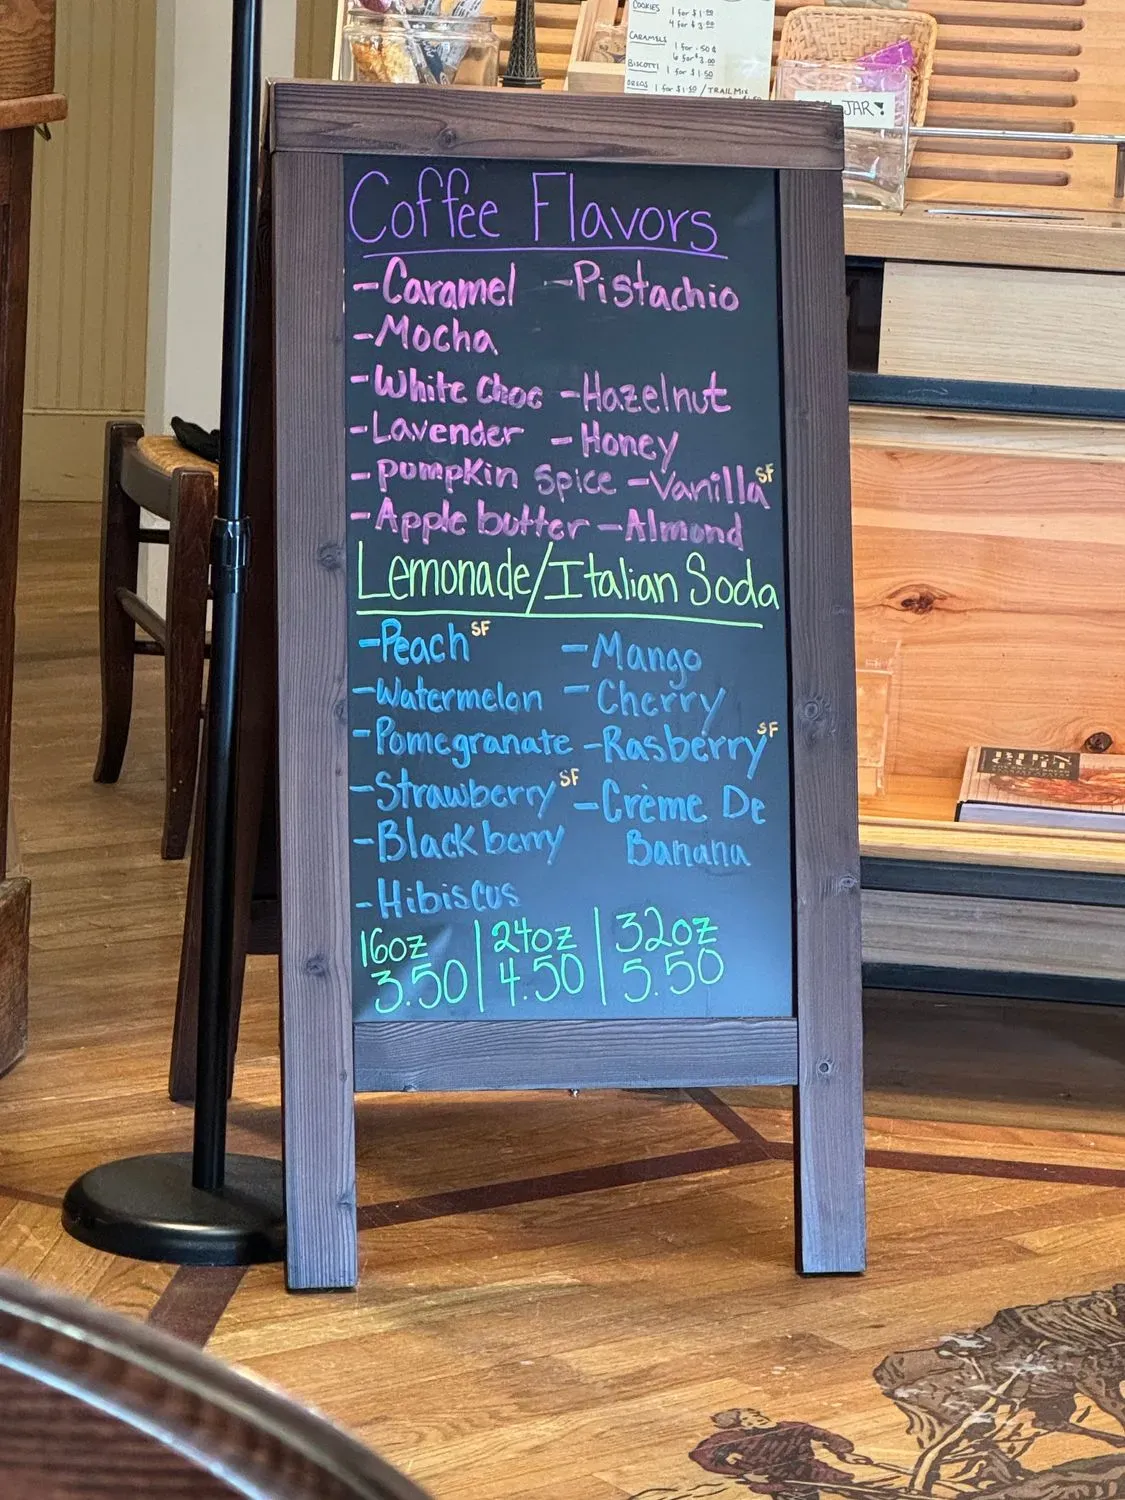 COOKIES 1 for $1.00
4 for $3.00
CARAMELS
1 for .50¢
6 for $3.00
BISCOTTI 1 for $1.50
1 for $1.50 / TRAIL MIX
JAR
Coffee Flavors
-Caramel -Pistachio
-Mocha
-White Choc -Hazelnut
-Lavender -Honey
-Pumpkin Spice -Vanilla SF
-Apple butter -Almond
Lemonade/Italian Soda
-Peach SF -Mango
-Watermelon -Cherry
-Pomegranate -Rasberry SF
-Strawberry SF -Crème De
Banana
-Blackberry
-Hibiscus
16oz | 24oz | 32oz
3.50 | 4.50 | 5.50